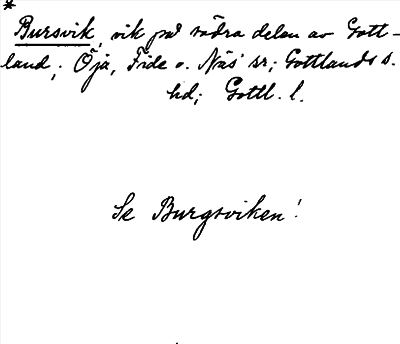 *
Bursvik, vik på södra delen av Gott-
land; Öja, Fide o. Näs sr; Gottlands s.
hd; Gottl. l.
Se Burgsviken!